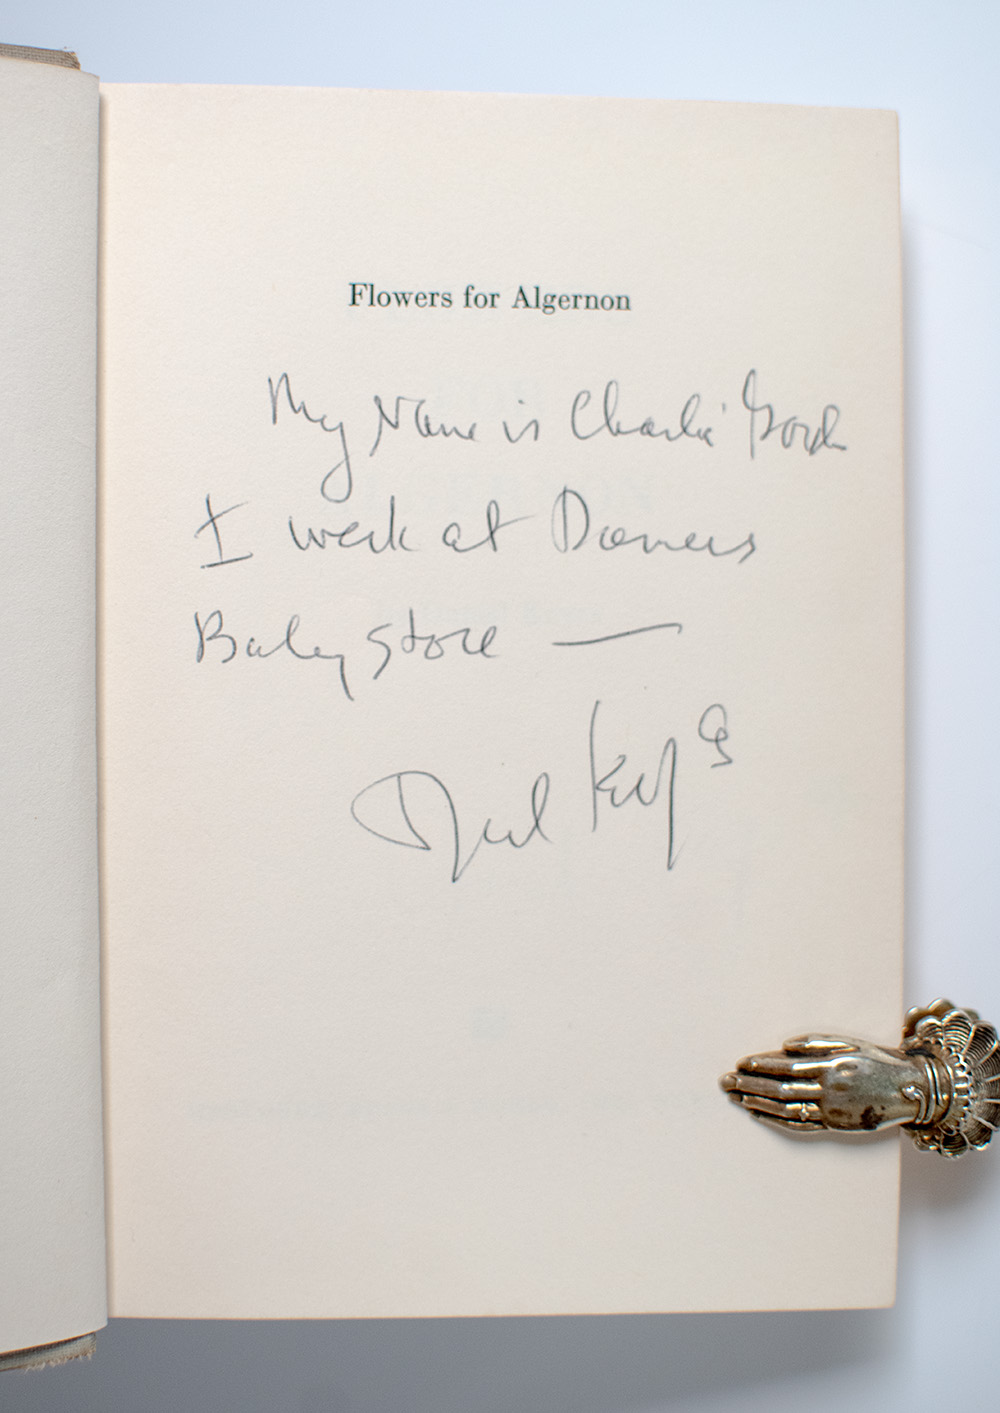 Flowers for Algernon
My Name is Charlie Gordon
I werk at Donners
Bakery store —
Daniel Keyes